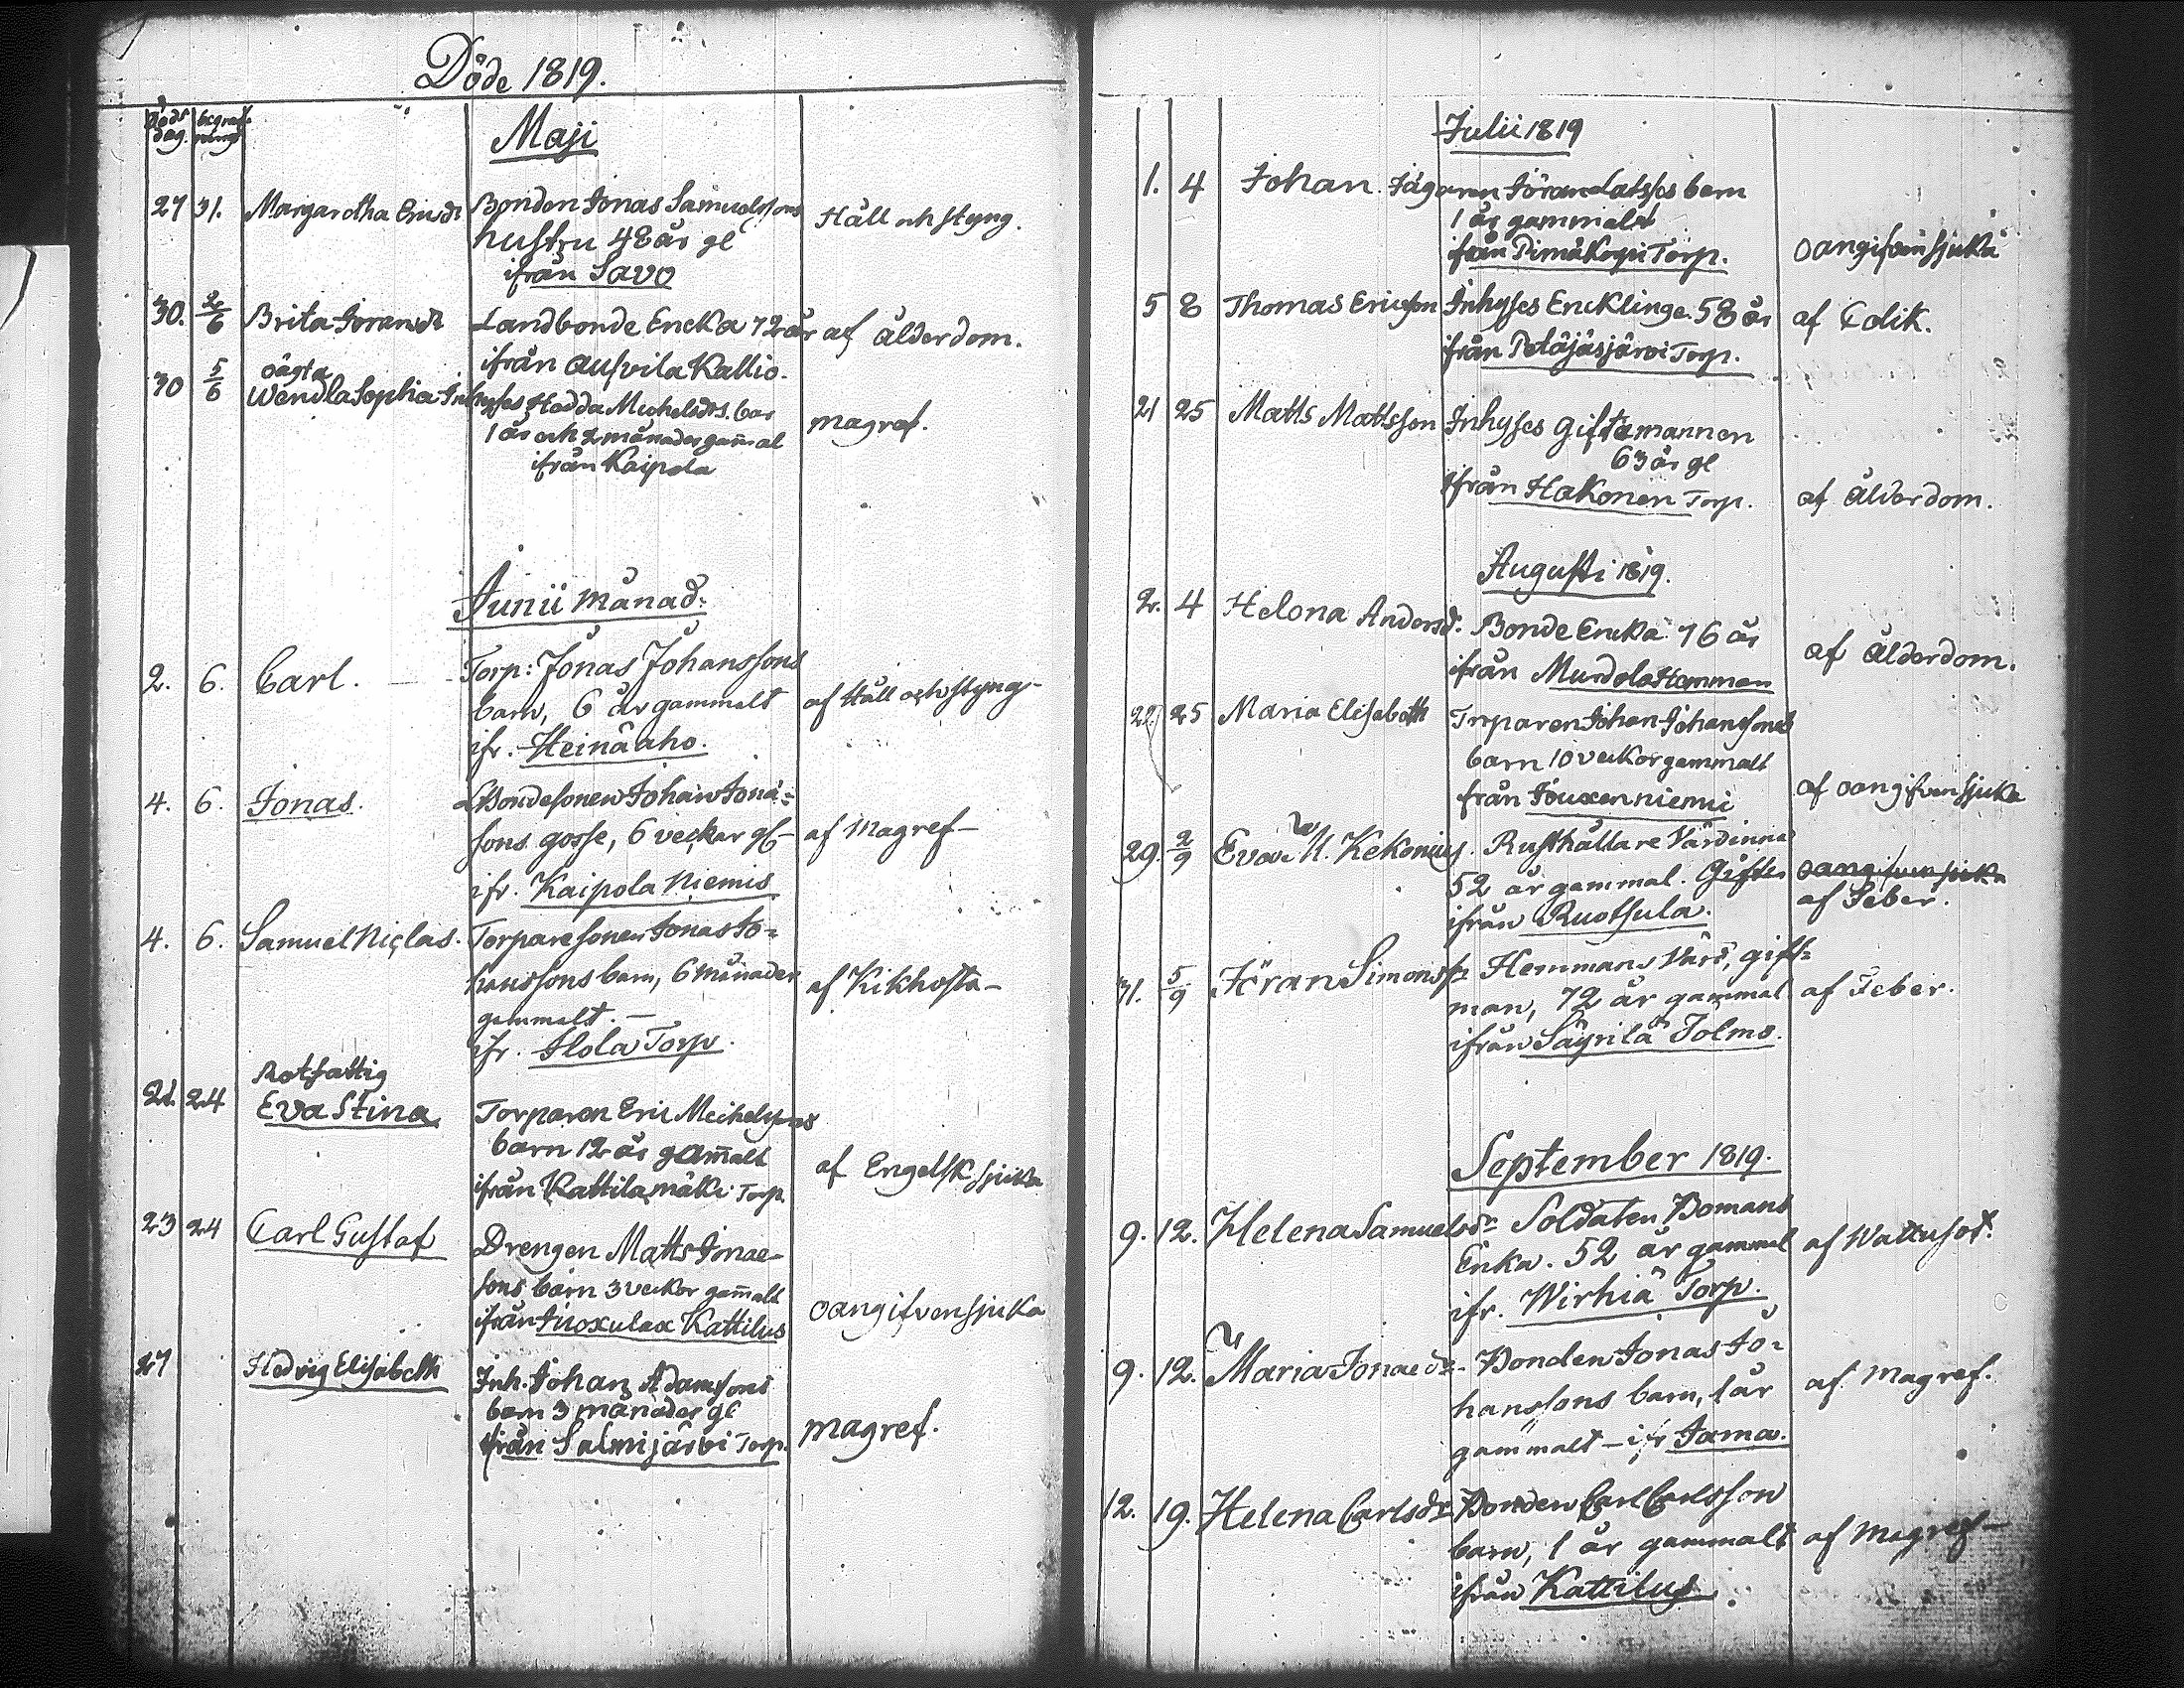 Döde 1819.
Döds begraf-
dag. nings
Maji
27 31. Margaretha Ericsdr Bonden Jonas Samuelssons Håll och styng.
hustru 48 år gl
ifrån Savo
30. 2/6 Brita Joransdr Landbonde Encka 72 år af ålderdom.
ifrån Ausvila Kallio.
oägta
30 5/6 Wendla Sophia Inhyses Hedda Michelsdrs. bar magref.
1 år och 2 månader gamal
ifrån Kaipola
Junii månad:
2. 6. Carl. Torp: Jonas Johanssons
barn, 6 år gammalt af Håll och styng-
ifr. Heinäaho.
4. 6. Jonas. Bondesonen Johan Jona=
sons gosse, 6 veckar gl- af Magref-
ifr. Kaipola Niemis
4. 6. Samuel Niclas. Torparesonen Jonas Jo=
hanssons barn, 6 månader af Kikhosta-
gammalt.-
ifr. Hola Torp.
Rotfattig
21. 24 Eva Stina Torparen Eric Meihelssons
barn 12 år gamalt af Engelsk sjuka
ifrån Kattilamäki Torp.
23 24 Carl Gustaf Drengen Matts Jonae-
sons barn 3 veckor gamalt oangifven sjuka
ifrån Kattilus
27 Hedvig Elisabeth Inh. Johan Adamsons
barn 3 månader gl magref.
ifrån Salmijärvi Torp.
Julii 1819
1. 4 Johan. Jägaren barn
1 år gammalt
ifrån Torp. oangifven sjuka
5 8 Thomas Ericsson Inhyses Enckling. 58 år af Colik.
ifrån Petäjäsjärvi Torp.
21 25 Matts Mattsson Inhyses Giftamannen
63 år gl
ifrån Hakonen Torp. af ålderdom.
Augusti 1819.
2. 4 Helena Andersd. Bonde Encka 76 år af ålderdom.
ifrån Murdola Hemman
22. 25 Maria Elisabeth Torparen Johan Johanssons
barn 10 veckor gammalt
från Jouxenniemi af oangifven sjuka
29. 2/9 Eva M. Kekonius. Rusthållare Värdinna
52 år gammal. Gifter oangifven sjuka
ifrån Ruotsula. af Feber.
31. 5/9 Jöran Simonss. Hemmans Värd, gift=
man, 72 år gammal af Feber.
ifrån Säyrilä Tolmo.
September 1819.
9. 12. Helena Samuelsdr. Soldaten Bomans
Enka. 52 år gammal af Wattusot.
ifr. Wirhiä Torp.
9. 12. Maria Jonaedr. Bonden Jonas Jo=
hanssons barn, 1 år af Magref.
gammalt - ifr Jama.
12. 19. Helena Carlsdr. Bonden Carl Carlsson
barn, 1 år gammalt af Magref-
ifrån Kattilus